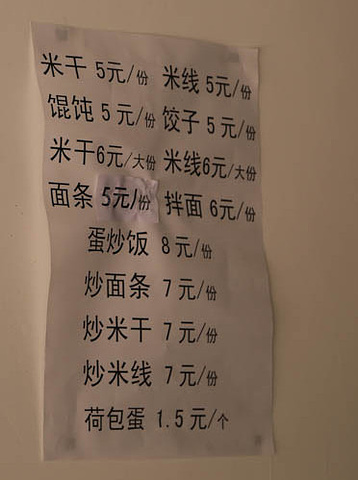 米干 5元/份 米线 5元/份
馄饨 5元/份 饺子 5元/份
米干6元/大份 米线6元/大份
面条 5元/份 拌面 6元/份
蛋炒饭 8元/份
炒面条 7元/份
炒米干 7元/份
炒米线 7元/份
荷包蛋 1.5元/个